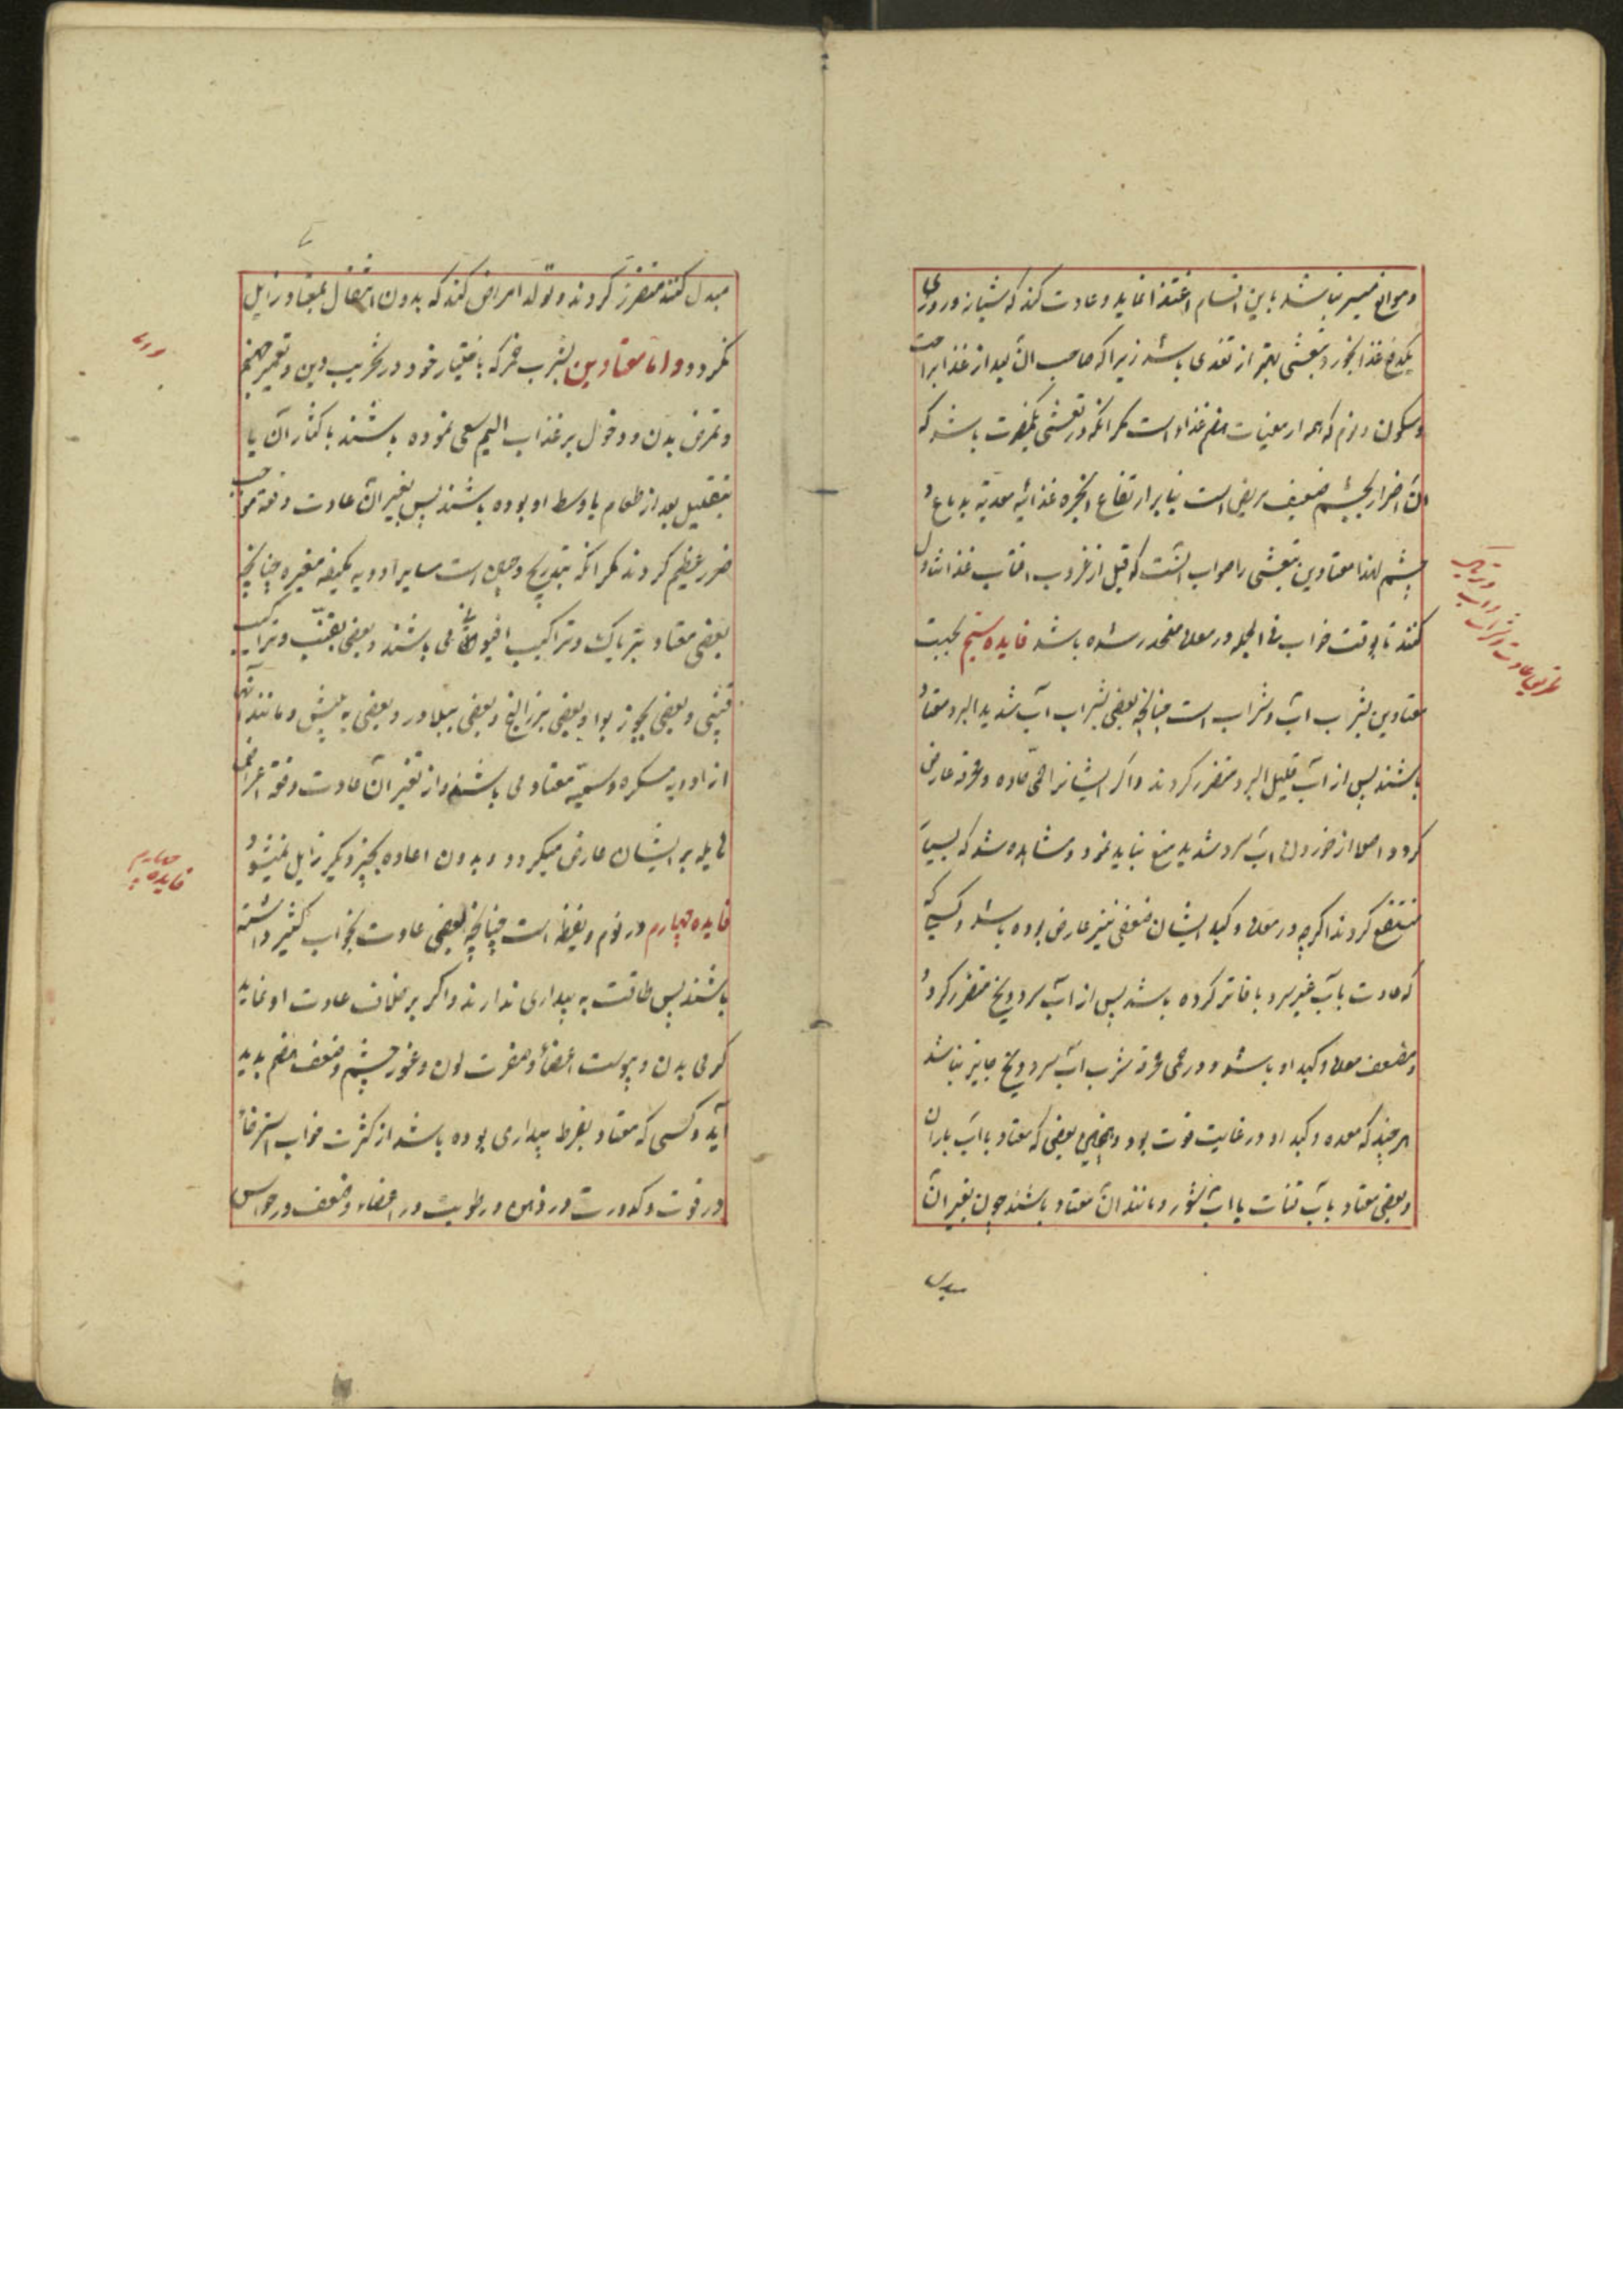 و موانع میسر نباشد باین اقسام اغتذا نماید و عادت کند که شبانه روزی
یکدفع غذا بخورد و تعشی بهتر از تغدی باشد زیرا که صاحب آن بعد از غذا براحت
و سکون و نوم که همه از معینات هضم غذاء است مگر آنکه در تعشی یکمضرت باشد که
آن اضرار بچشم ضعیف مریض است بنابر ارتفاع ابخره غذائیه معدیه بدماغ و
چشم لهذا معتادین بتعشی را صواب آنست که قبل از غروب آفتاب غذا تناول
کنند تا بوقت خواب فی الجمله در معده منحدر شده باشد فایده سیم بحسب
معتادین بشرب آب و شراب است چنانچه بعضی بشرب آب شدید البرد معتاد
باشند پس از آب قلیل البرد متضرر گردند و اگر ایشانرا حمی حاده و محرقه عارض
گردد اصلا از خوردن آب سرد شدید منع نباید نمود و مشاهده شد که بسیار
منتفع گردند اگرچه در معده و کبد ایشان ضعفی نیز عارض بوده باشد و کسیکه
که عادت بآب غیر سرد یا فاتر کرده باشد پس از آب سرد و یخ متضرر گردد
و مضعف معده و کبد او باشد و در حمی محرقه شرب آب سرد و یخ جایز نباشد
هر چند که معده و کبد او در غایت قوت بود و همچنین بعضی که معتاد بآب باران
و بعضی معتاد بآب قنات یا آب شور و مانند آن معتاد باشند چون بغیر آن
مبدل
تعریف عادت شراب و آب و تریاک
مبدل کنند متضرر گردند و تولد امراض کند که بدون انتقال بمعتاد زایل
نگردد و اما معتادین بشرب خمر که باختیار خود در تخریب دین و تعمیر جهنم
و تمرض بدن و دخول بر عذاب الیم سعی نموده باشند باکثار آن یا
بتقلیل بعد از طعام یا وسط او بوده باشند پس بغیر آن عادت دفعة موجب
ضرر عظیم گردند مگر آنکه بتدریج و همچنین است سایر ادویه بکیفه مغیره چنانچه
بعضی معتاد بتریاک و تراکیب افیونی می باشند و بعضی بقنب و تراکیب
قنبی و بعضی بجوز بوا و بعضی ببزر البنج و بعضی ببلادر و بعضی به بیش و مانند آنها
از ادویه مسکره و سمیه معتاد می باشند و از تغیر آن عادت دفعة اعراض
هایله بر ایشان عارض میگردد و بدون اعاده بچیز دیگر زایل نمیشود
فایده چهارم در نوم و یقظه است چنانچه بعضی عادت بخواب کثیر داشته
باشند پس طاقت به بیداری ندارند و اگر بر خلاف عادت او نماید
گرمی بدن و یبوست اعضاء و صفرت لون و غور چشم و ضعف هضم پدید
آید و کسی که معتاد بفرط بیداری بوده باشد از کثرت خواب استرخاء
در قوت و کدورت در ذهن و رطوبت در اعضاء و ضعف در حواس
فایده چهارم